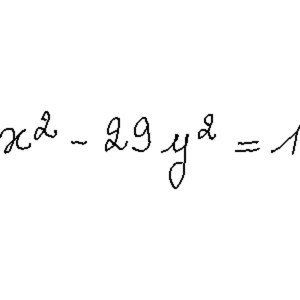 x² - 29y² = 1